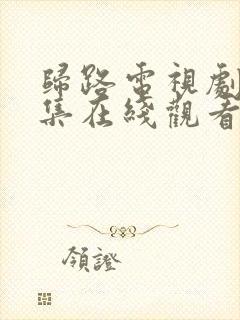 歸路電視劇
集在綫觀看
領證